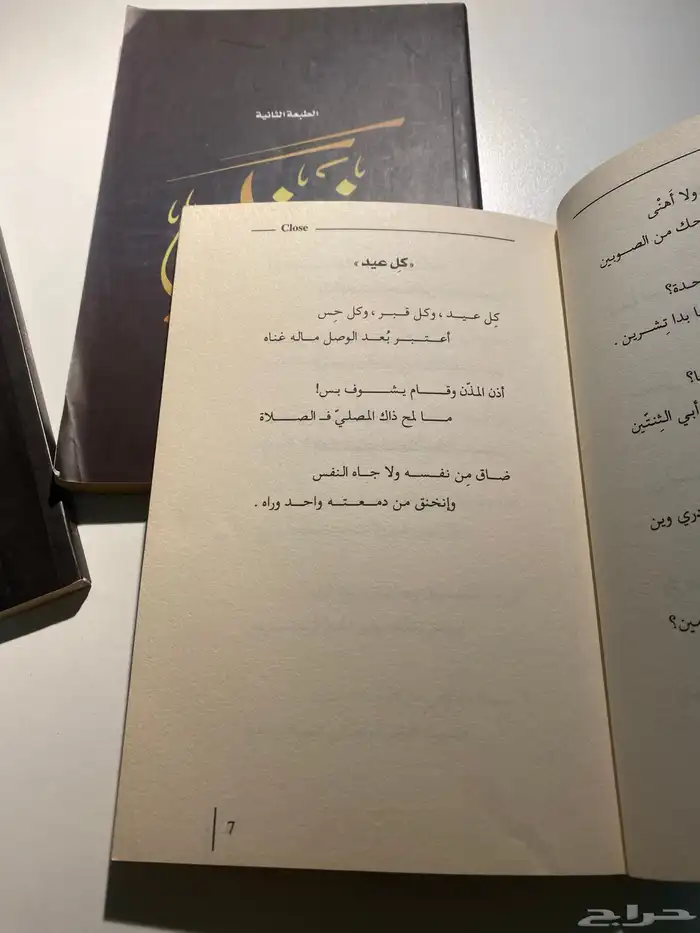 الطبعة الثانية
Close
«كِل عيد»
كِل عـيـد، وكل قبـر، وكل حِس
أعـتـبـر بُعد الوصل ماله غناه
أذن المذّن وقـام يـشـوف بس!
مـا لمح ذاك المصليّ فـ الصـلاة
ضاق مِن نفـسـه ولا جاه النفس
وإنخنق من دمـعـتـه واحـد وراه .
7
ولا أَهنْى
حك من الصـوبين
حـدة؟
ا بدا تِشرين .
ا؟
أبي الثِنتّين
دري وين
مين؟
حراج